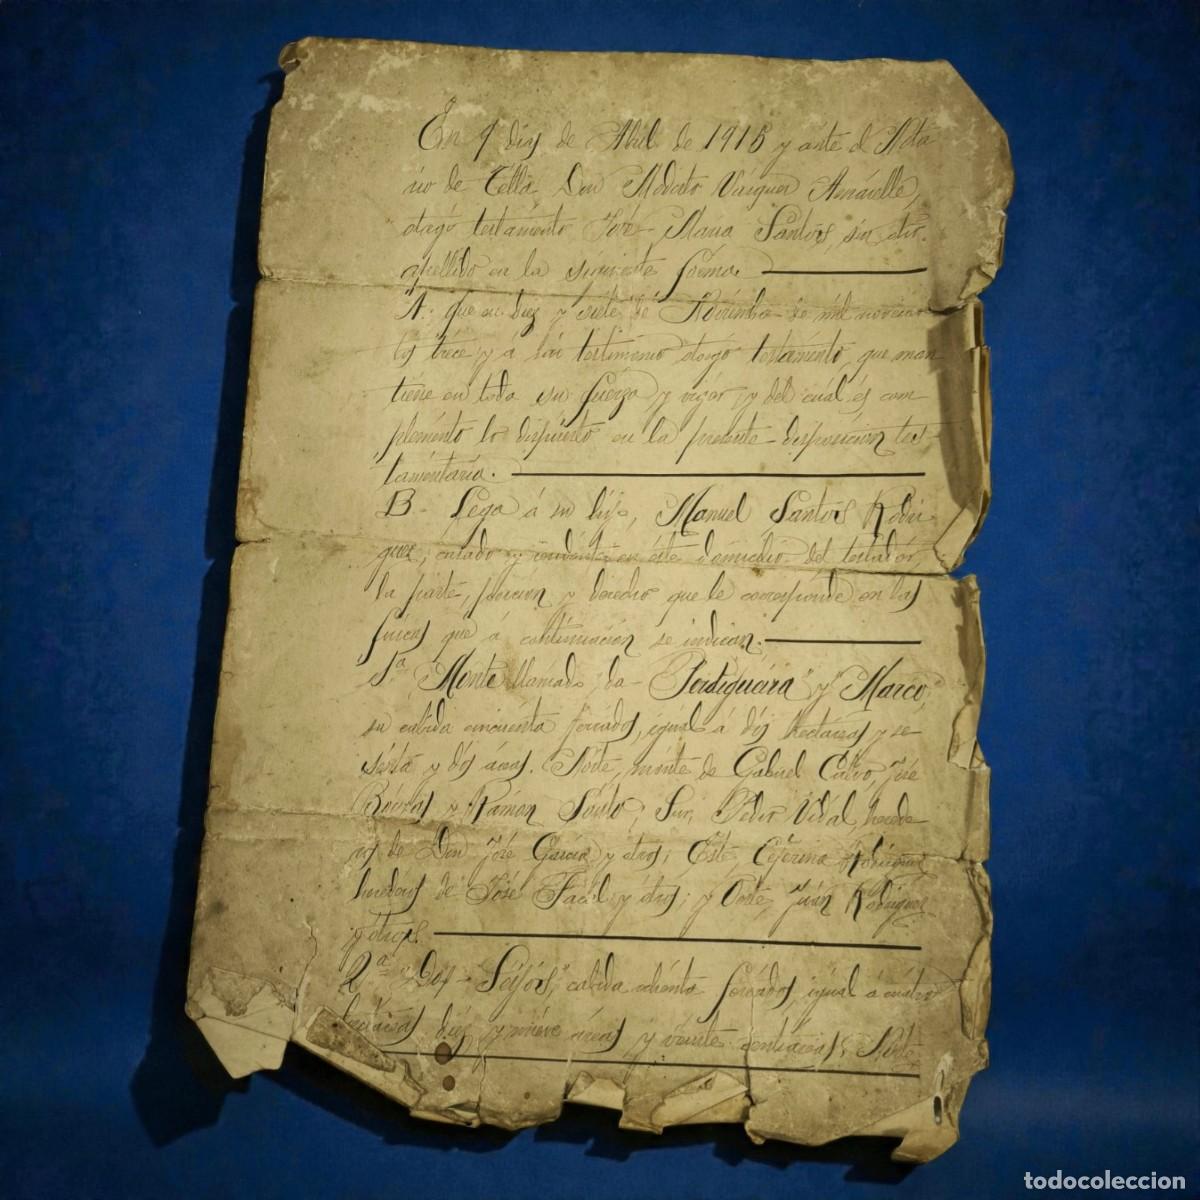 En 1 día de Abril de 1915 y ante el Nota
rio de Tella Don Modesto Vázquez Amarelle,
otorgó testamento José María Santos, sin otro
apellido en la siguiente forma.
A. que en diez y siete de mil novecien
tos trece y á su testimonio otorgó testamento, que man
tiene en toda su fuerza y vigor y del cual és com
plemento lo dispuesto en la presente disposicion tes
tamentaria.
B. Lega á su hijo, Manuel Santos Rodri
guez, casado y residente en éste domicilio del testador,
la parte, porcion y derechos que le corresponde en las
fincas que á continuación se indican.
1ª Monte llamado da "Perdigueira" y "Marco",
su cabida cincuenta ferrados, igual á dos hectáreas y se
senta y dos áreas. Norte, monte de Gabriel Calvo, José
y Ramón Souto; Sur, Pedro Vidal, herede
ros de Don José García y otros; Este, Ceferina
herederos de José Facál y otros; y Oeste, Juán Rodriguez
y otros.
2ª Dos "Seijós", cabida ochenta ferrados, igual á cuatro
hectáreas diez y nueve áreas y veinte centiáreas. Norte
todocoleccion